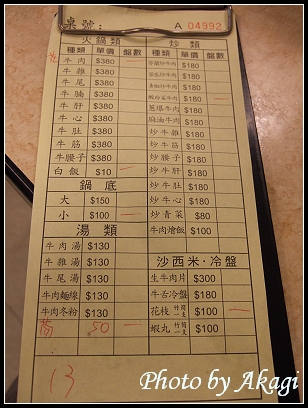 桌號:
A 04992
火鍋類
種類 單價 盤數
牛肉 $380
牛雜 $380
牛尾 $380
牛腩 $380
牛肝 $380
牛心 $380
牛肚 $380
牛筋 $380
牛腰子 $380
白飯 $10 一
鍋底
大 $150
小 $100 一
湯類
牛肉湯 $130
牛雜湯 $130
牛尾湯 $130
牛肉麵線 $130
牛肉冬粉 $130
50 一
13
炒類
種類 單價 盤數
芥蘭炒牛肉 $180
$180
$180
$180 一
蔥爆牛肉 $180
麻油牛肉 $180
炒牛雜 $180
炒牛筋 $180
炒腰子 $180
炒牛肝 $180
炒牛肚 $180
炒牛心 $180
炒青菜 $80
牛肉燴飯 $100
沙西米·冷盤
生牛肉片 $300
牛舌冷盤 $180
花枝 竹筒一支 $100 一
蝦丸 竹筒一支 $100
Photo by Akagi